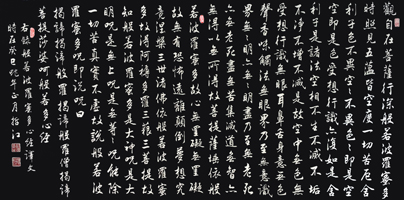 觀自在菩薩行深般若波羅蜜多
時照見五蘊皆空度一切苦厄舍
利子色不異空空不異色色即是
空空即是色受想行識亦復如是舍
利子是諸法空相不生不滅不垢
不淨不增不減是故空中無色無
受想行識無眼耳鼻舌身意無色
聲香味觸法無眼界乃至無意識
界無無明亦無無明盡乃至無老死
亦無老死盡無苦集滅道無智亦
無得以無所得故菩提薩埵依般
若波羅蜜多故心無罣礙無罣礙
故無有恐怖遠離顛倒夢想究
竟涅槃三世諸佛依般若波羅蜜
多故得阿耨多羅三藐三菩提故
知般若波羅蜜多是大神咒是大
明咒是無上咒是無等等咒能除
一切苦真實不虛故說般若波
羅蜜多咒即說咒曰
揭諦揭諦般羅揭諦般羅僧揭諦
菩提薩婆訶般若多心經
右錄般若波羅蜜多心經譯文
時在癸巳年正月